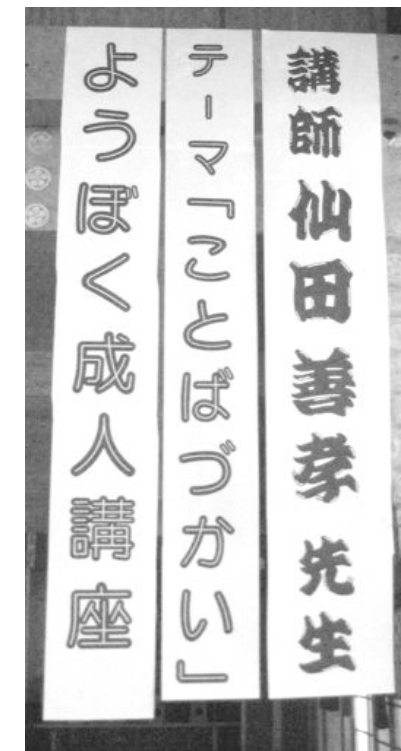 講師 仙田善孝 先生
テーマ「ことばづかい」
ようぼく成人講座